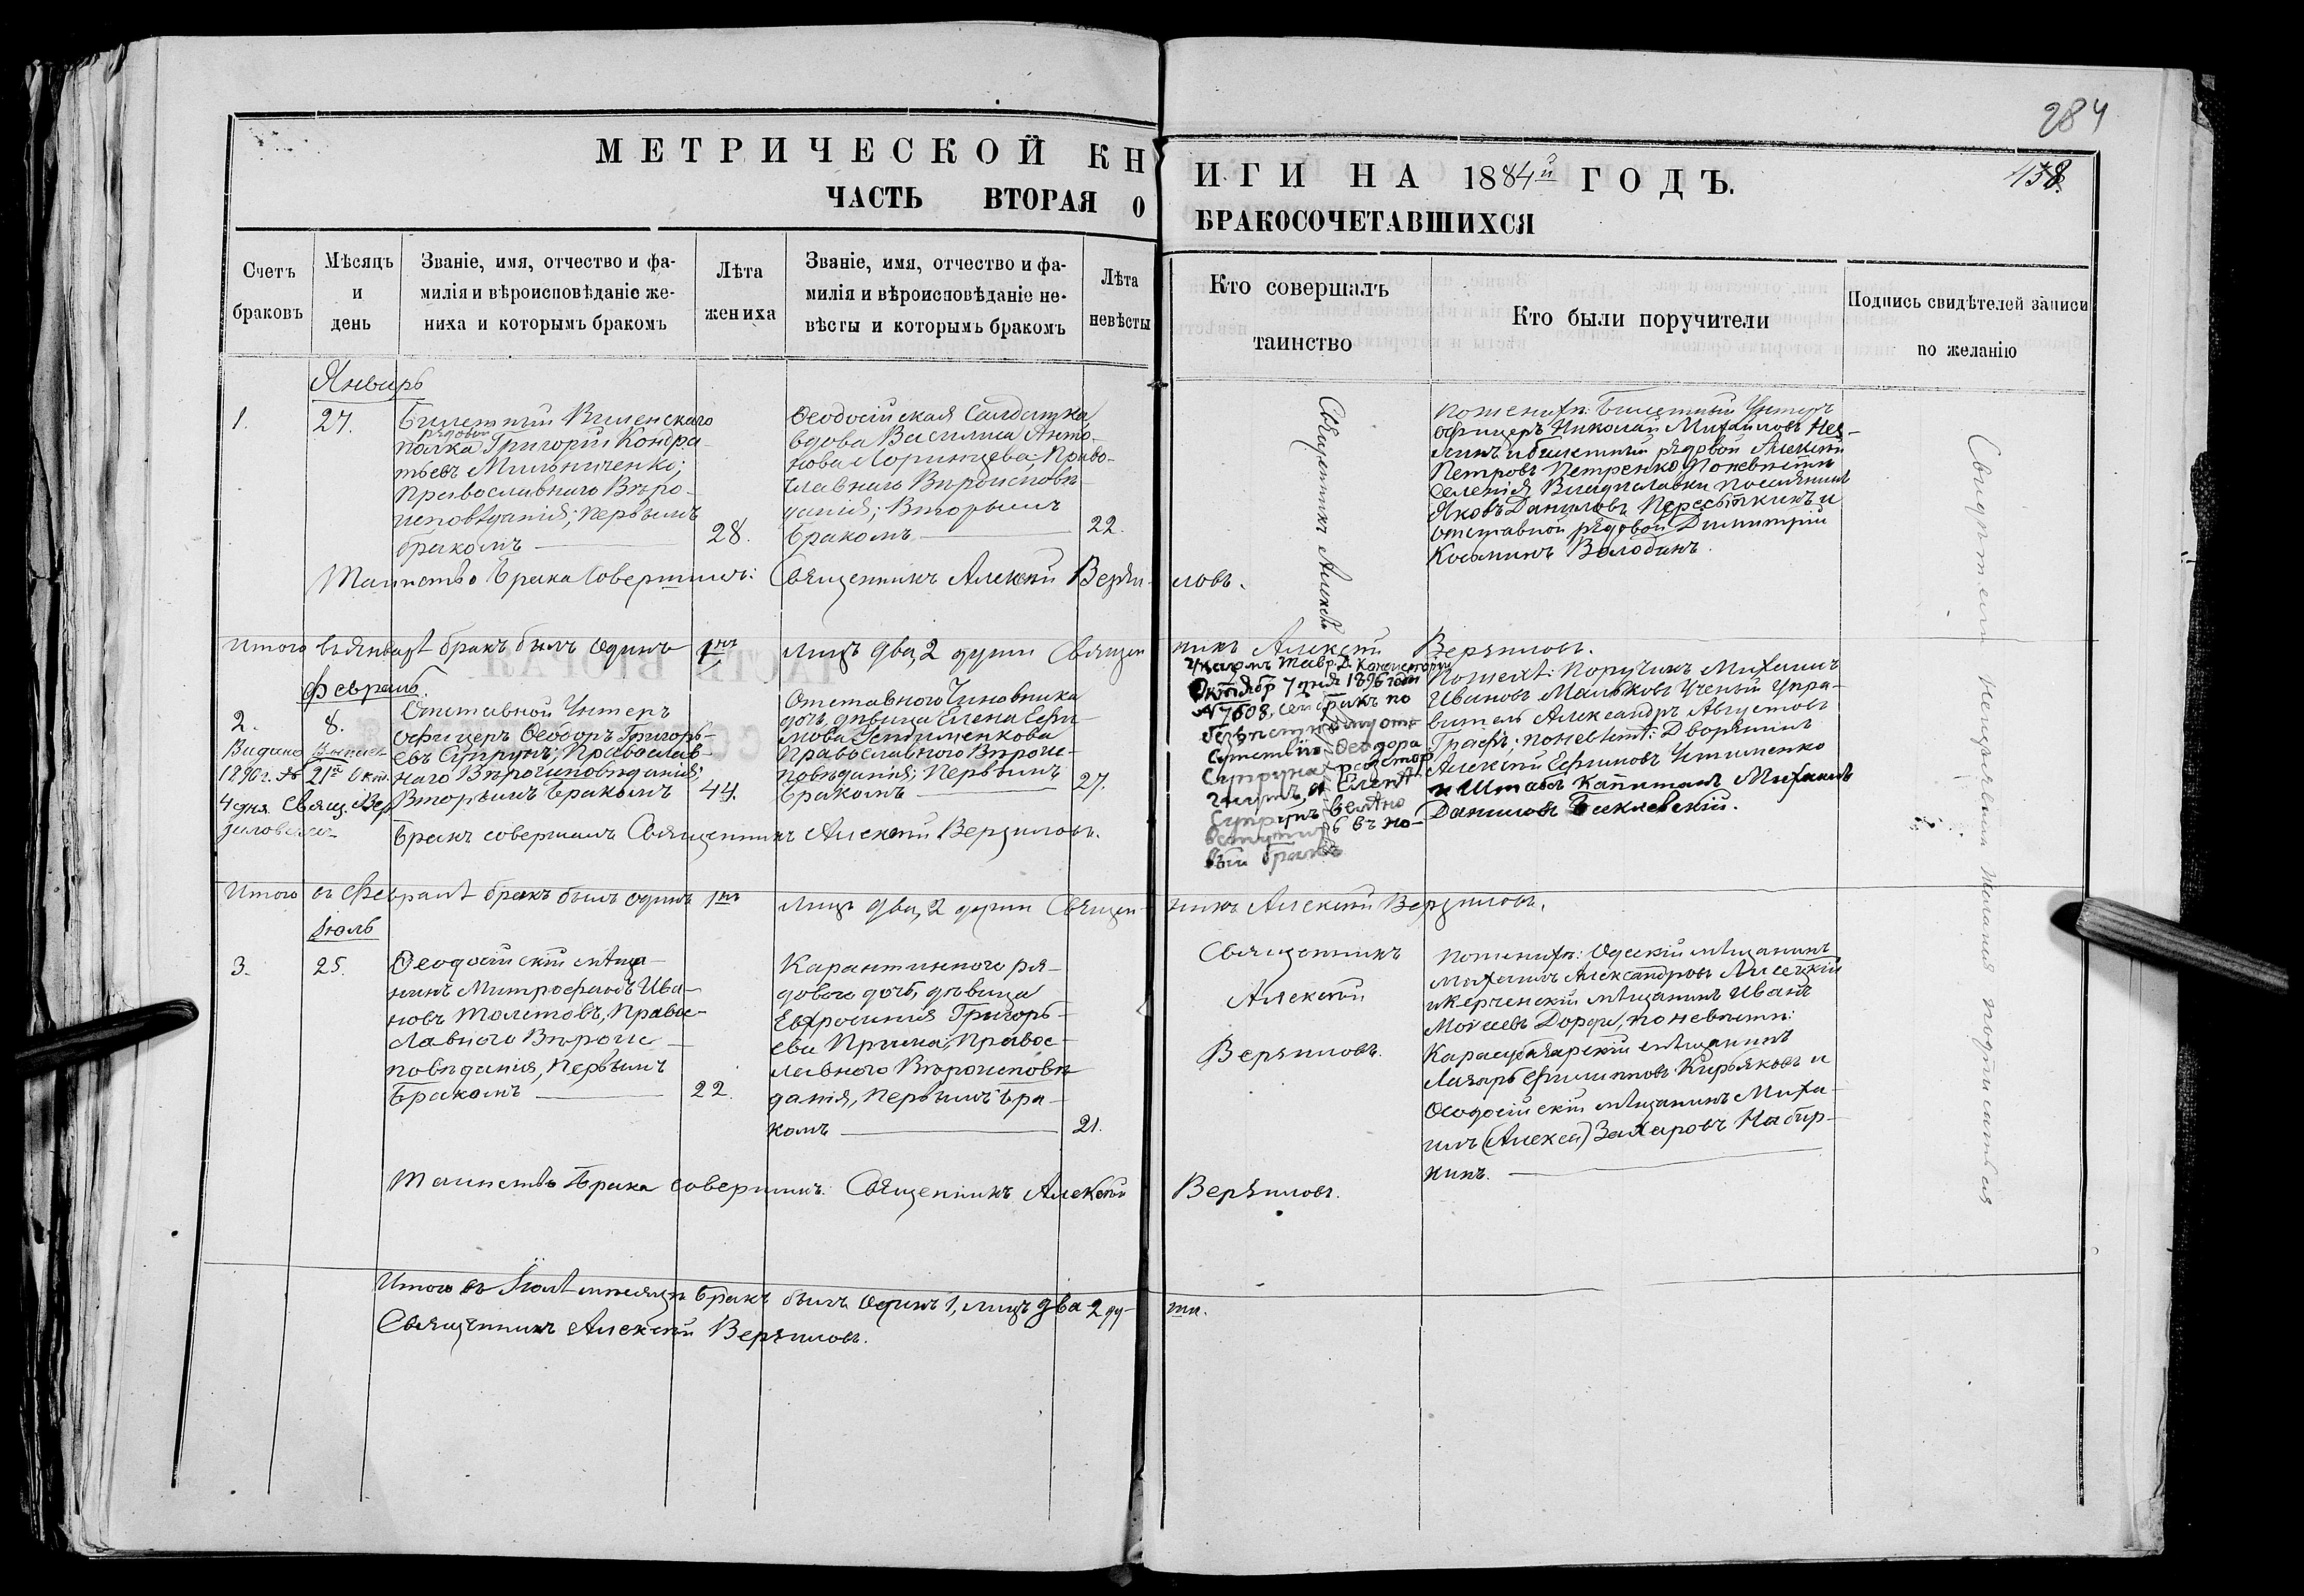 284
138.
МЕТРИЧЕСКОЙ КНИГИ НА 1884й ГОДЪ.
ЧАСТЬ ВТОРАЯ О БРАКОСОЧЕТАВШИХСЯ
Счетъ браковъ
Мѣсяцъ и день
Званіе, имя, отчество и фа-
милія и вѣроисповѣданіе же-
ниха и которымъ бракомъ
Лѣта жениха
Званіе, имя, отчество и фа-
милія и вѣроисповѣданіе не-
вѣсты и которымъ бракомъ
Лѣта невѣсты
Кто совершалъ
таинство
Кто были поручители
Подпись свидѣтелей записи
по желанію
Январь
1.
27.
Билетный Виленскаго
рядовой
полка Григорій Кондра-
тьевъ Мильниченко;
Православнаго Вѣро-
исповѣданія; первымъ
бракомъ
28.
Ѳеодосійская Салдатка
вдова Василиса Анто-
нова Лоринцева; Право-
славнаго Вѣроисповѣ-
данія; Вторымъ
бракомъ
22.
Священникъ Алексѣй
По женихѣ: Билетный Унтеръ
офицеръ Николай Михайловъ
и билетный рядовой Алексѣй
Петровъ Петренко По невѣстѣ
Селенія Владиславки поселянинъ
Яковъ Даниловъ Пересыпкинъ и
отставной рядовой Димитрій
Косьминъ Володинъ.
Таинство Брака Совершилъ: Священникъ Алексѣй Верзиловъ.
Итого въ Январѣ бракъ былъ Одинъ 1нъ лицъ два, 2 души Священникъ Алексѣй Верзиловъ.
Февраль.
2.
8.
Выдано
1896 г. за
21й Окт.
4 дня Свящ. Вер
зиловымъ
Отставной Унтеръ
офицеръ Ѳеодоръ Григорь-
евъ Супрунъ; Православ-
наго Вѣроисповѣданія;
Вторымъ Бракомъ
44.
Отставного Чиновника
дочь, дѣвица Елена Ефи-
мова Устименкова
Православнаго Вѣроис-
повѣданія; Первымъ
Бракомъ
27.
Указомъ Тавр. Д. Консисторіи
Октябр 7 дня 1896 года
№ 7608, сей бракъ по
безвѣстному от-
сутствію Ѳеодора
Супруна расторг
нутъ, а Еленѣ
Супрунъ
вступить въ но-
вый бракъ
По женихѣ: Поручикъ Михаилъ
Ивановъ Мальковъ Ученый Упра-
витель Александръ Августовъ
Графъ; по невѣстѣ: Дворянинъ
Алексѣй Ефимовъ Устименко
и Штабсъ Капитанъ Михаилъ
Даниловъ Беклевскій.
Бракъ совершилъ Священникъ Алексѣй Верзиловъ.
Итого въ Февралѣ бракъ былъ одинъ 1нъ Лицъ два, 2 души Священникъ Алексѣй Верзиловъ.
Іюль
3.
25.
Ѳеодосійскій мѣща-
нинъ Митрофанъ Ива-
новъ Толстовъ, Право-
славнаго Вѣроис-
повѣданія, Первымъ
Бракомъ
22.
Карантиннаго ря-
дового дочь, дѣвица
Евфросинія Григорь-
ева Прима, Право-
славнаго Вѣроисповѣ-
данія, Первымъ Бра-
комъ
21.
Священникъ
Алексѣй
Верзиловъ.
По женихѣ: Одесскій мѣщанинъ
Михаилъ Александровъ Лисецкій
и Керченскій мѣщанинъ Иванъ
Моисеевъ Дорфи, по невѣстѣ:
Карасубазарскій мѣщанинъ
Лазарь Филипповъ Кирьяковъ и
Ѳеодосійскій мѣщанинъ Миха-
илъ (Алексей) Захаровъ Набир-
кинъ.
Таинство Брака совершилъ: Священникъ Алексѣй Верзиловъ.
Свидѣтели не изъявили желанія подписаться
Итого въ Іюлѣ мѣсяцѣ бракъ былъ Одинъ 1, лицъ два 2 души.
Священникъ Алексѣй Верзиловъ.